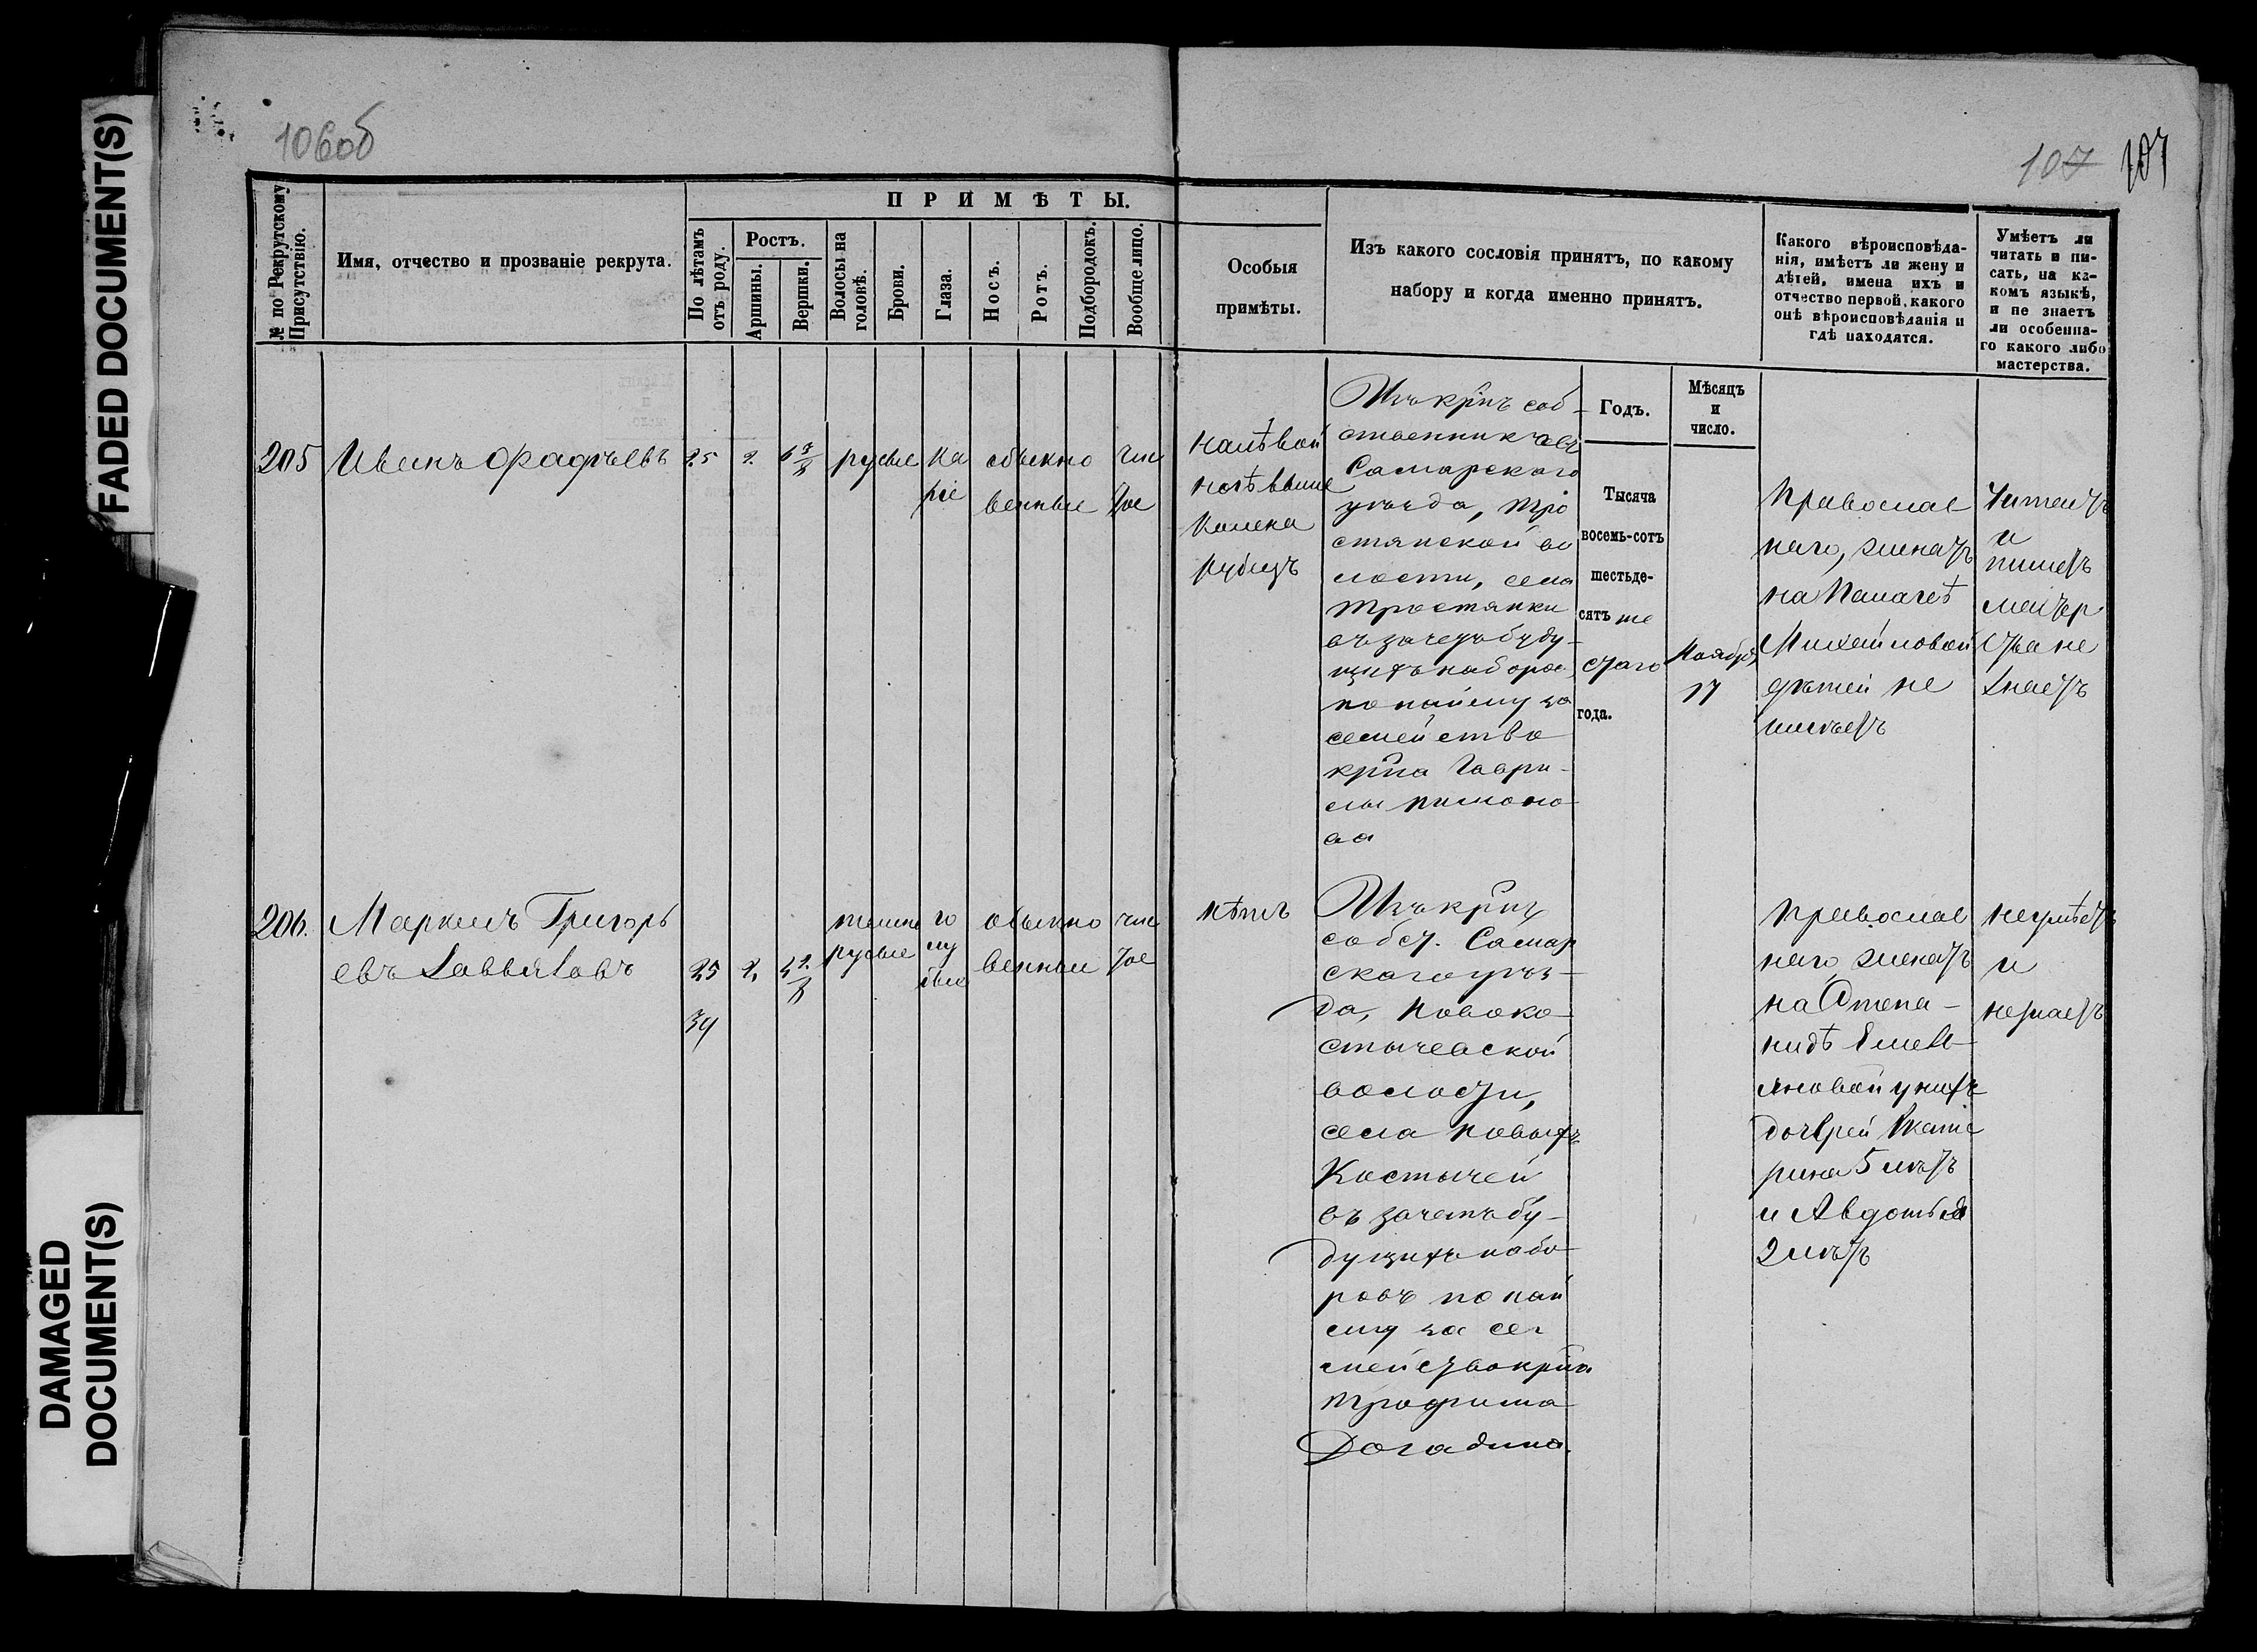 FADED DOCUMENT(S)
DAMAGED
DOCUMENT(S)
106об
107 107
№ по Рекрутскому
Присутствію.
Имя, отчество и прозваніе рекрута.
ПРИМѢТЫ.
По лѣтамъ
отъ роду.
Ростъ.
Аршины.
Вершки.
Волосы на
головѣ.
Брови.
Глаза.
Носъ.
Ротъ.
Подбородокъ.
Вообще лицо.
Особыя
примѣты.
Изъ какого сословія принятъ, по какому
набору и когда именно принятъ.
Какого вѣроисповѣда-
нія, имѣетъ ли жену и
дѣтей, имена ихъ и
отчество первой, какого
онѣ вѣроисповѣданія и
гдѣ находятся.
Умѣетъ ли
читать и пи-
сать, на ка-
комъ языкѣ,
и не знаетъ
ли особенна-
го какого либо
мастерства.
Годъ.
Мѣсяцъ
и
число.
205
Иванъ Фадѣевъ
25
2.
русые
ка
ріе
обыкно
венные
чис
тое
на лѣвой
ногѣ выше
колена
рубецъ
Изъ крнъ соб-
ственниковъ
Самарскаго
уѣзда, Тро
стянской во
лости, села
Тростянки
въ зачетъ буду-
щихъ наборов
по найму за
семейство
крна Гаври-
лы
Тысяча
восемь-сотъ
шестьде-
сятъ ше
стаго
года.
Ноября
17
Православ
наго, женатъ
на Палагеѣ
Михайловой
дѣтей не
имѣетъ
Читаетъ
и
пишетъ
мастер
ства не
знаетъ
206.
Маркелъ Григорь
евъ Завьяловъ
25
2.
темно
русые
го
лу
бые
обыкно
венные
чис
тое
нѣтъ
Изъ крнъ
собст. Самар
скаго уѣз-
да, Новоко-
стычевской
волости,
села Новыхъ
Костычей
въ зачетъ бу-
дущихъ набо-
ровъ по най
му за се
мейство крна
Трофима
Догадина.
Православ
наго, женатъ
на Степа-
нидѣ Емель
яновой у нихъ
дочерей Екате
рина 5 лѣтъ
и Авдотья
2 лѣтъ
не умѣетъ
и
не знаетъ